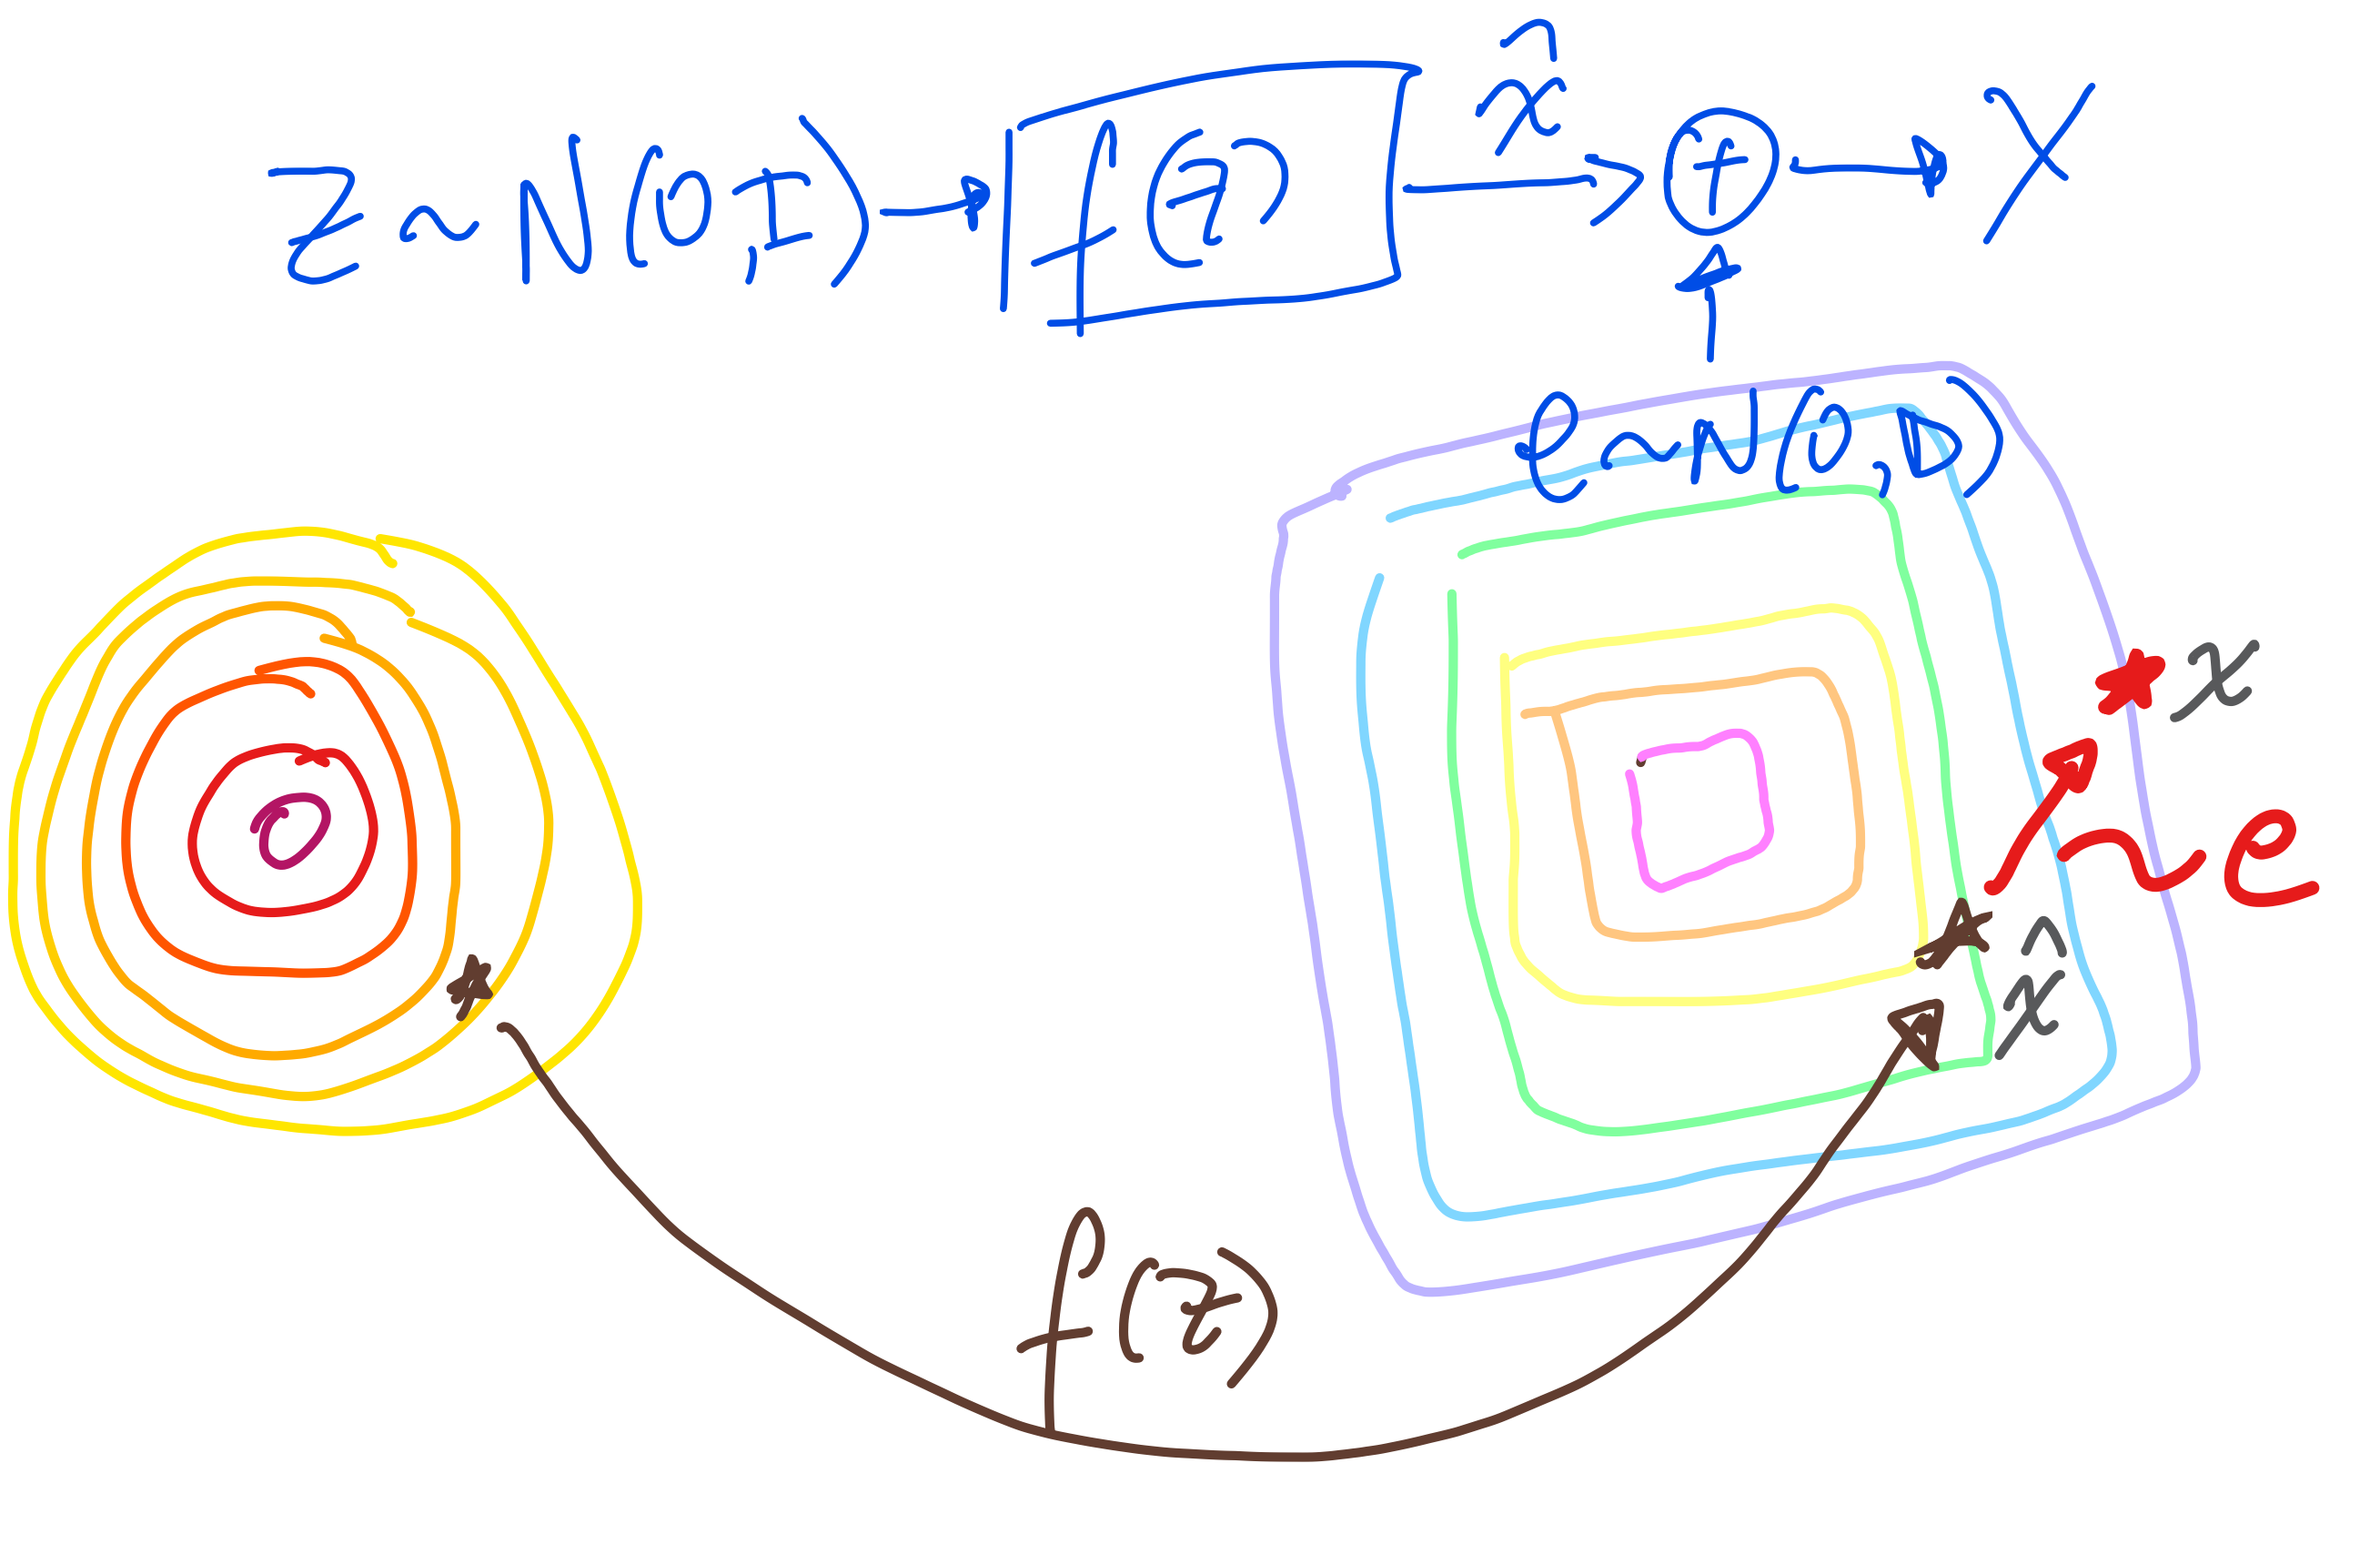 z ~ N(0, I) → f(z) → x̂ → ⊕ → x
e ~ N(0, D)
x
~ e
x̂
f(z)